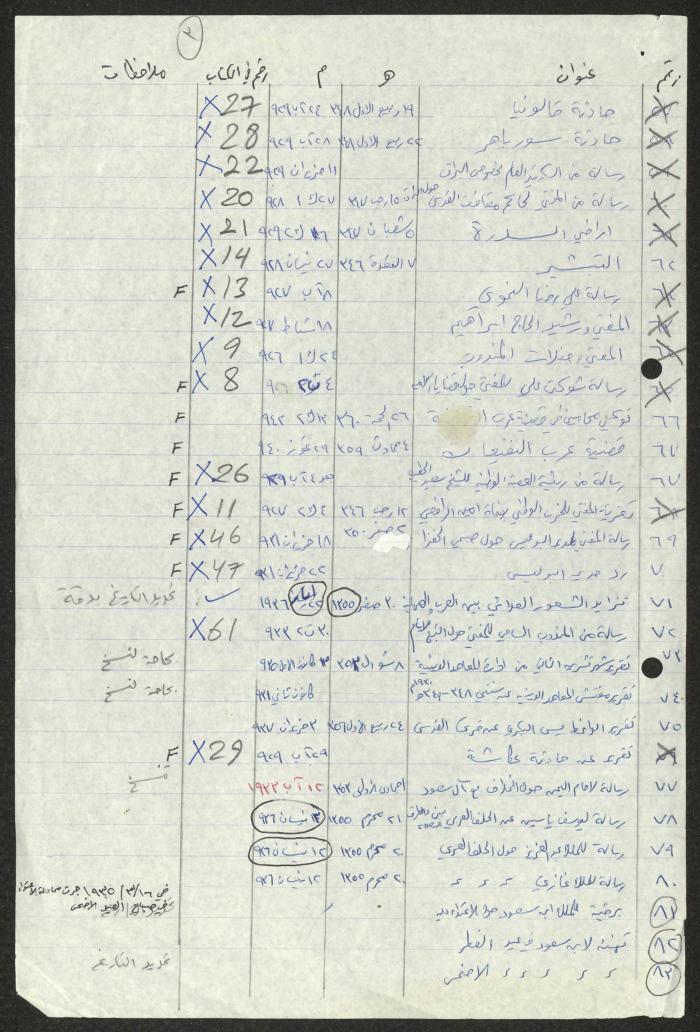 ٢
رقم عنوان هـ م رقم في الكتاب ملاحظات
حادثة قالونيا ١٩ ربيع الاول ٣٤٨ ٢٤ آب ٩٢٩ X 27
حادثة سور باهر ٢٢ ربيع الاول ٣٤٨ ٢٨ آب ٩٢٩ X 28
رسالة من السكرتير العام بخصوص البراق ١١ حزيران ٩٢٩ X 22
رسالة من المفتي لحاكم مقاطعة القدس حول البراق ١٥ رجب ٣٤٧ ٢٧ ك ١ ٩٢٨ X 20
اراضي السدرة ٥ شعبان ٣٤٧ ١٦ ك٢ ٩٢٩ X 21
٦٢ التبشير ٧ القعدة ٣٤٦ ٢٧ نيسان ٩٢٨ X 14
رسالة علي رضا النحوي ٨ آب ٩٢٧ X 13 F
المفتي ورشيد الحاج ابراهيم ١٨ شباط ٩٢٧ X 12
المفتي وحفلات المندوب ٢٤ ك ١ ٩٢٦ X 9
رسالة شوكت علي للمفتي حول قضايا اسلامية ٤ ت٢ ٩٢٦ X 8 F
٦٦ توكيل محامي في قضية عرب ٢٦ الحجة ٣٦٠ ١٣ ك٢ ٩٤٢ F
٦٧ قضية عرب النفيعات ٢٤ جمادى ٣٥٩ ٢٩ تموز ٩٤٠ F
٦٧ رسالة من الوطنية للشيخ سعيد الخطيب ٤ آب ٩٢٩ X 26 F
تعزية المفتي للحزب الوطني بوفاة امين الرافعي ١٢ رجب ٣٤٦ ٢ ك٢ ٩٢٧ X 11 F
٦٩ رسالة المفتي لمدير البوليس حول ٢ صفر ٣٥٠ ١٨ حزيران ٩٣١ X 46 F
٧٠ رد مدير البوليس ٢٢ حزيران ٩٣١ X 47 F
٧١ تزايد الشعور العدائي بين العرب والصهاينة ٣٠ صفر ١٣٥٥ ٢٢ أيار ١٩٣٦ تحديد التاريخ بدقة
٧٢ رسالة من المندوب السامي للمفتي حول ٣٠ ت٢ ٩٣٢ X 61
٧٣ تقرير شهر تشرين الثاني من ادارة المعاهد الدينية ٨ شوال ٣٥٣ ٣ كانون الاول ٩٣٥ بحاجة لنسخ
٧٤ تقرير مفتش المعاهد الدينية عن سنتي ٣٤٨-٣٤٩ كانون ثاني ٩٣١ بحاجة لنسخ
٧٥ تقرير الواعظ يس البكري عن قرى القدس ٢٤ ربيع الاول ٣٥٦ ٣ حزيران ٩٣٧
تقرير عن حادثة عطاشة ٢٩ آب ٩٢٩ X 29 F
٧٧ رسالة لامام اليمن حول الخلاف مع آل سعود جمادى الأولى ٣٥٢ ١٢ آب ١٩٣٣ تنسخ
٧٨ رسالة ليوسف ياسين عن الحلف العربي ٢١ محرم ١٣٥٥ ١٣ نيسان ٩٣٦
٧٩ رسالة للملك عبد العزيز حول الحلف العربي ٢٠ محرم ١٣٥٥ ١٢ نيسان ٩٣٦
٨٠ رسالة للملك غازي ״ ״ ״ ٢٠ محرم ١٣٥٥ ١٢ نيسان ٩٣٦
٨١ برقية للملك ابن سعود حول الاعتداء عليه في ١٦/٣/١٩٣٥ جرت محاولة الاعتداء
في صباح العيد الاضحى
٨٢ تهنئة لابن سعود في عيد الفطر
٨٣ ״ ״ ״ ״ ״ الاضحى تحديد التاريخ